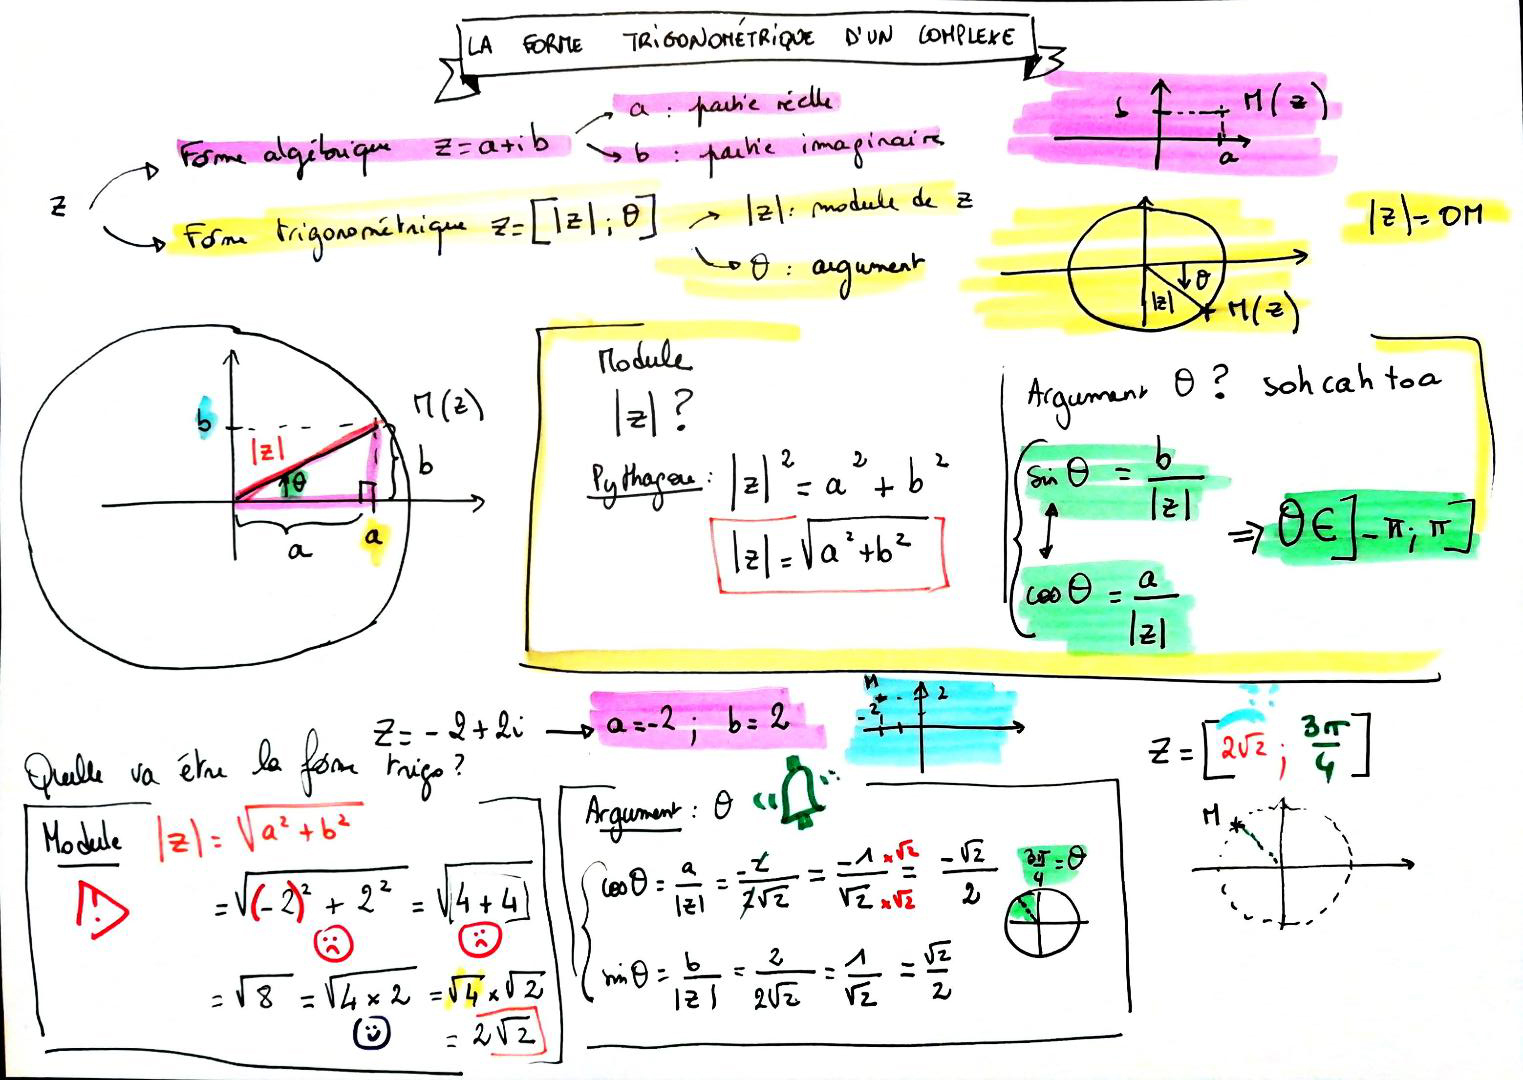 LA FORME TRIGONOMÉTRIQUE D'UN COMPLEXE
z
Forme algébrique z=a+ib
a : partie réelle
b : partie imaginaire
b
M(z)
a
Forme trigonométrique z=[|z|; θ]
|z|: module de z
θ : argument
θ
|z|
M(z)
|z|=OM
b
M(z)
|z|
θ
b
a
a
Module
|z| ?
Pythagore : |z|² = a² + b²
|z| = √a²+b²
Argument θ ? sohcahtoa
sin θ = b/|z|
cos θ = a/|z|
⇒ θ∈]-π; π]
z = -2+2i → a=-2 ; b=2
M
-2
2
Quelle va être la forme trigo ?
z = [2√2 ; 3π/4]
M
Module |z| = √a²+b²
!
= √(-2)² + 2² = √4+4
= √8 = √4×2 = √4 × √2
= 2√2
Argument : θ
cos θ = a/|z| = -2/2√2 = -1/√2 ×√2/×√2 = -√2/2
3π/4 = θ
sin θ = b/|z| = 2/2√2 = 1/√2 = √2/2